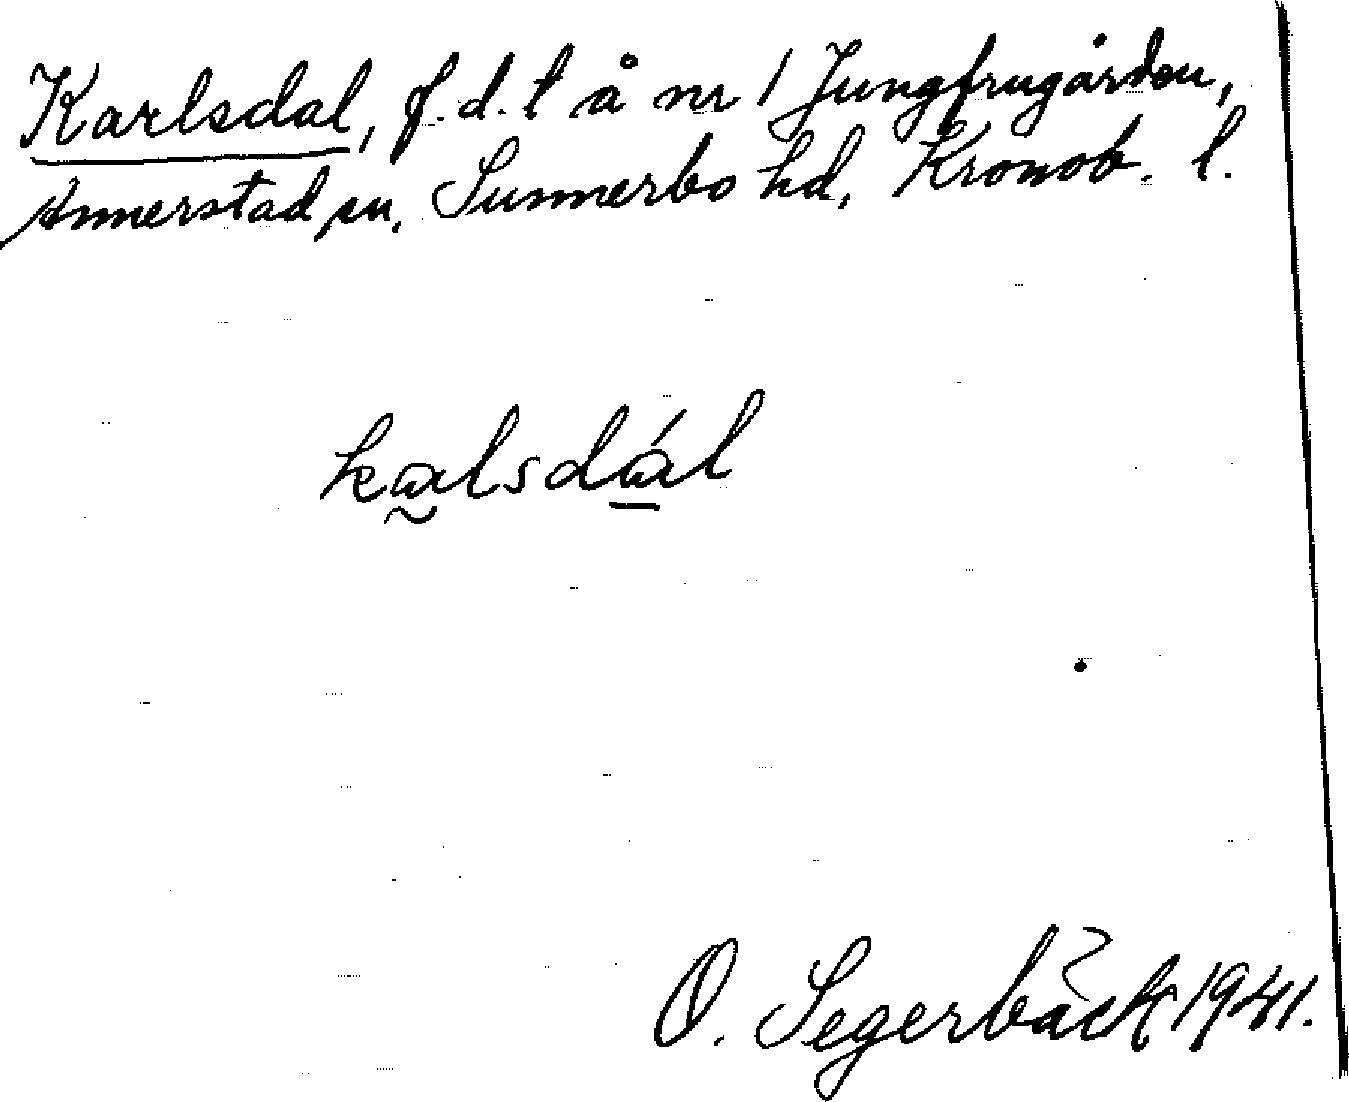 Karlsdal, f.d. l å nr 1 Jungfrugården,
Annerstad sn, Sunnerbo hd, Kronob. l.
kalsdál
O. Segerbäck 1941.